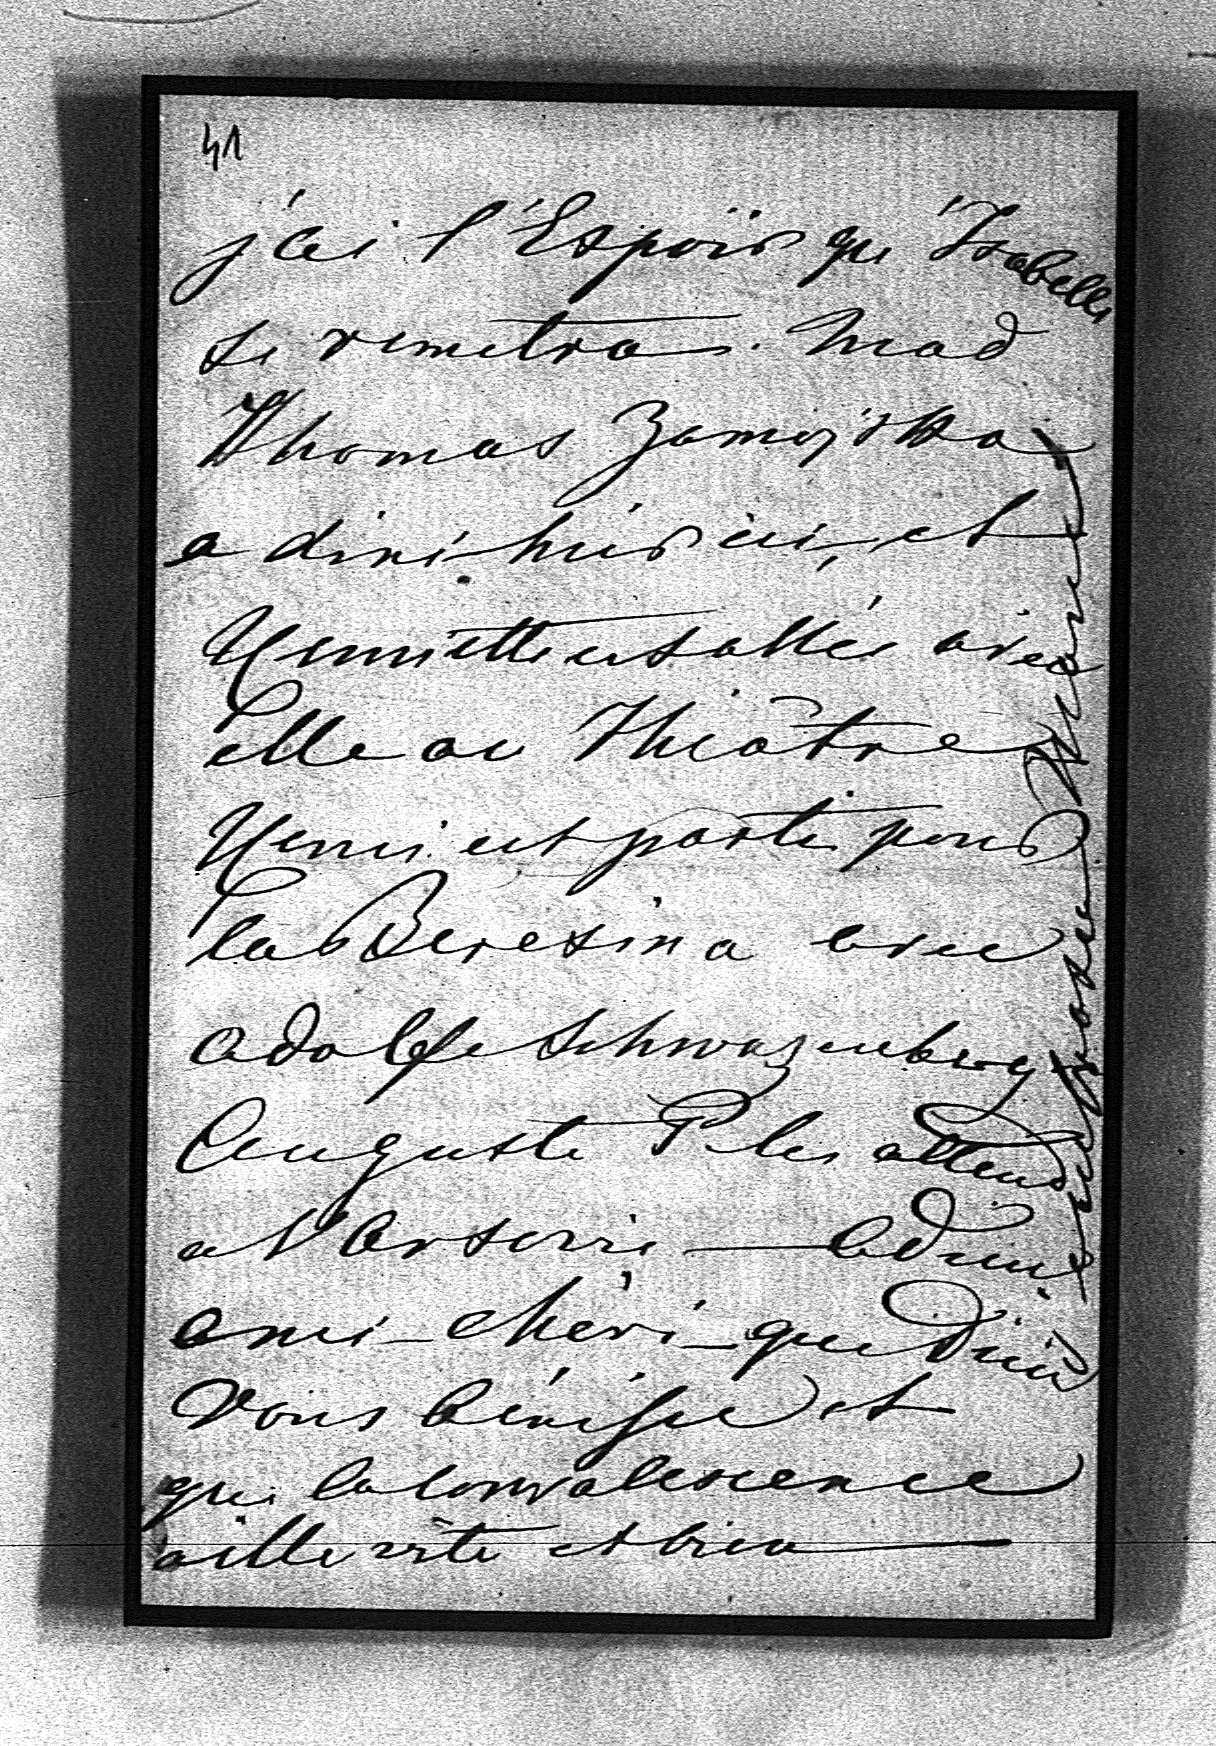 41
j'ai l'Espoir que Isabelle
se remetra. Mad
Thomas Zamojska
a diné hier ici, et
Henriette est allée avec
elle au Théâtre
Henri est parti pour
la Beresina avec
Adolfe Schwazenberg
Auguste P les attend
a l'Arsovie — Adieu
ami chéri – que Dieu
Vous bénisse et
que la convalescence
aille vite et bien